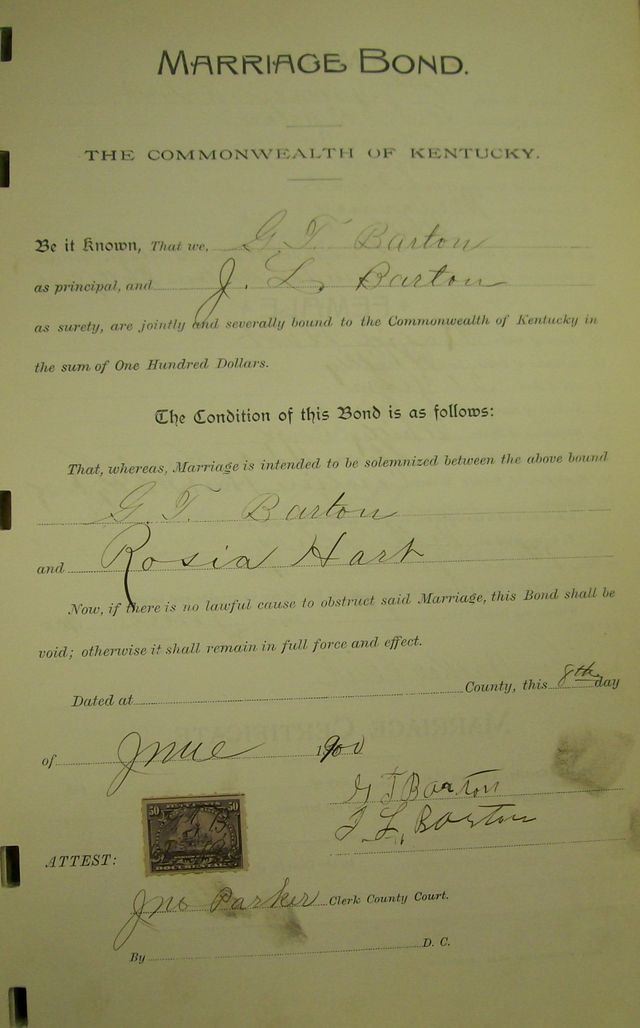 MARRIAGE BOND.
THE COMMONWEALTH OF KENTUCKY.
Be it Known, That we, G. T. Barton
as principal, and J. L. Barton
as surety, are jointly and severally bound to the Commonwealth of Kentucky in
the sum of One Hundred Dollars.
The Condition of this Bond is as follows:
That, whereas, Marriage is intended to be solemnized between the above bound
G. T. Barton
and Rosia Hart
Now, if there is no lawful cause to obstruct said Marriage, this Bond shall be
void; otherwise it shall remain in full force and effect.
Dated at County, this 8th day
of June 1900
G T Barton
J. L. Barton
50 50
DOCUMENTARY
ATTEST:
Jno Parker Clerk County Court.
By D. C.